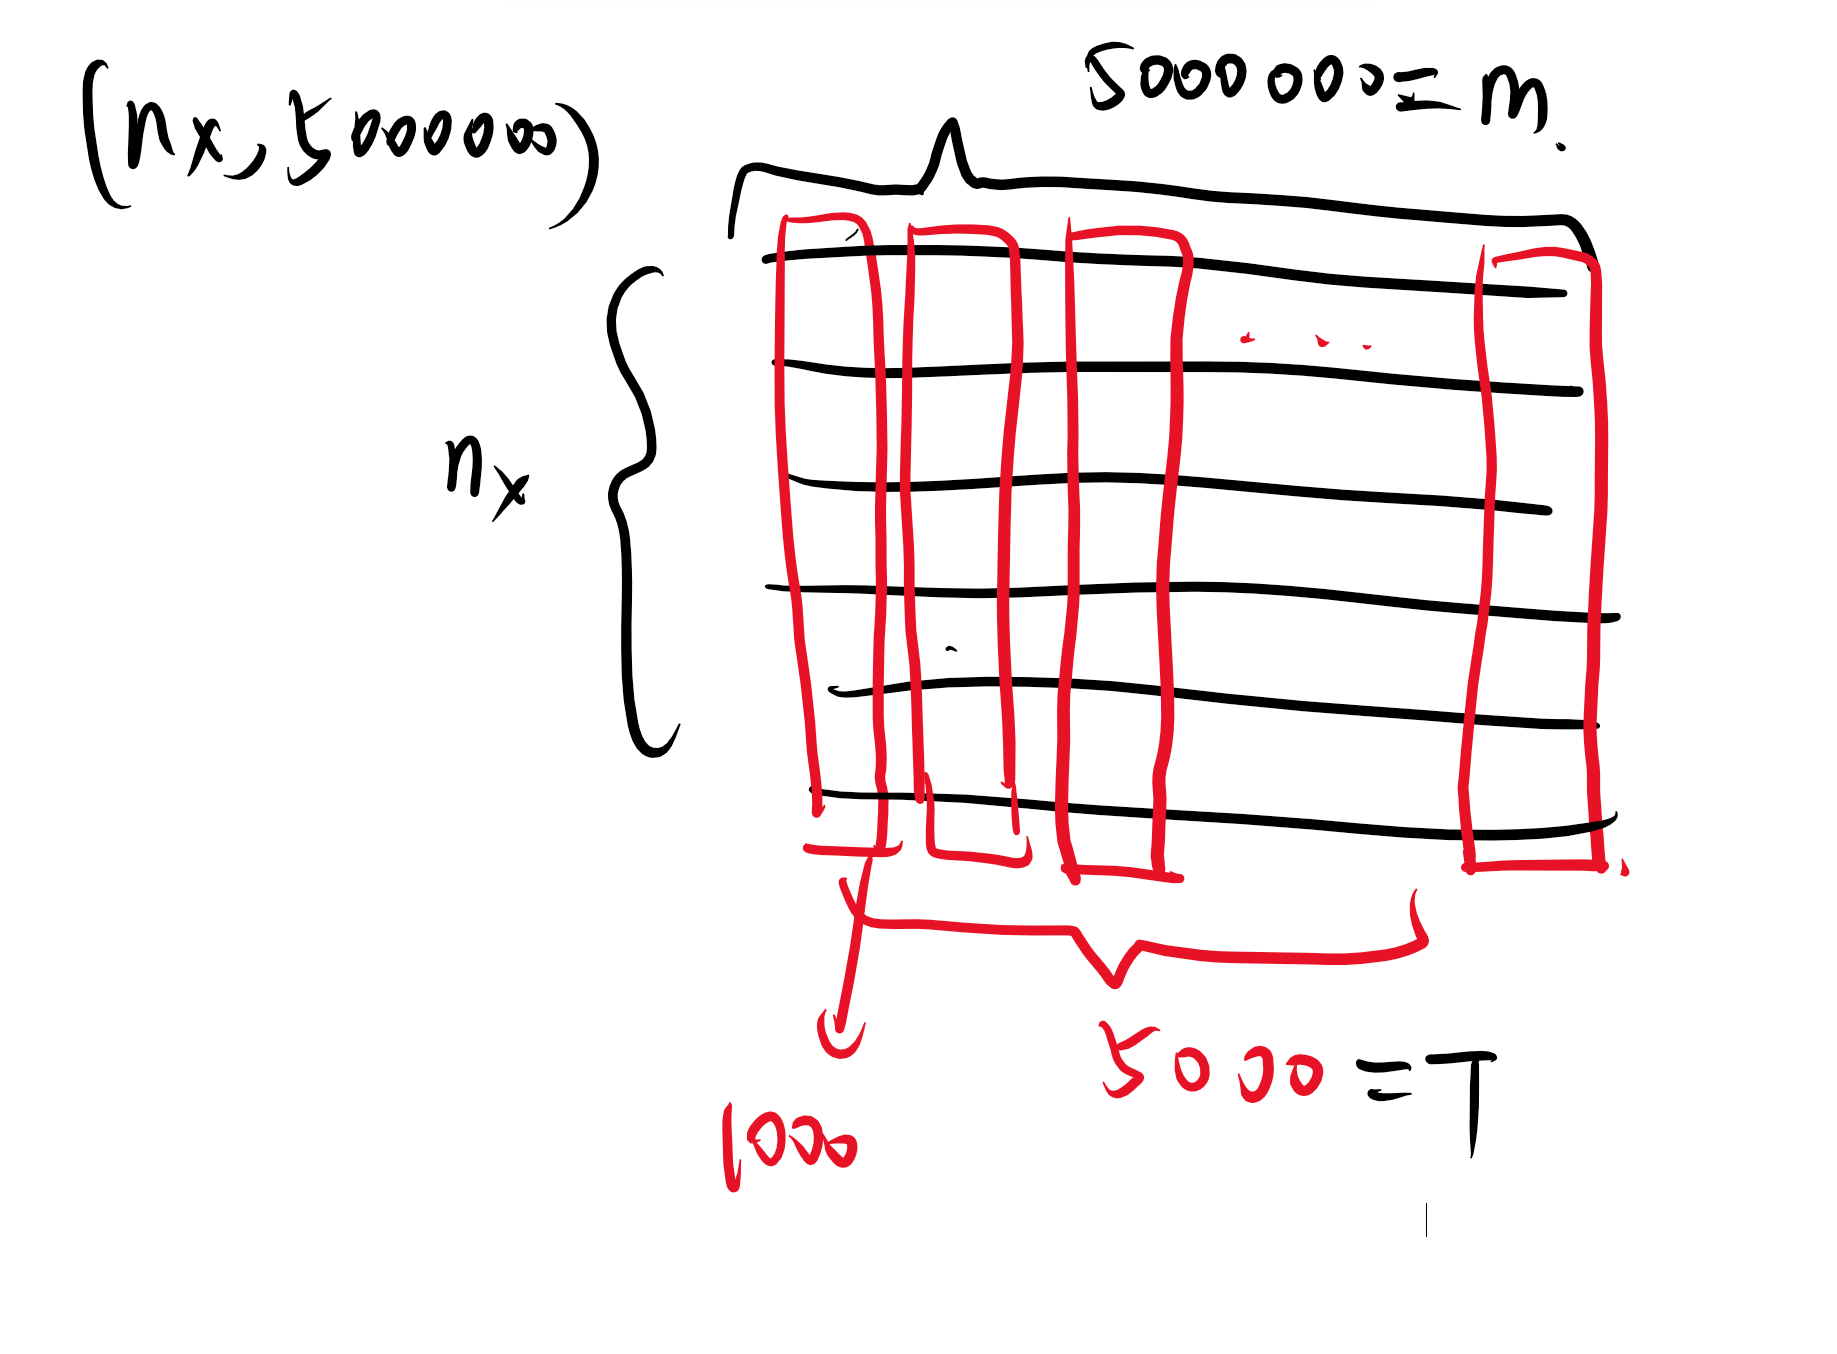 (nx, 5000000)
5000000 = m.
nx
. . .
5000 = T
1000